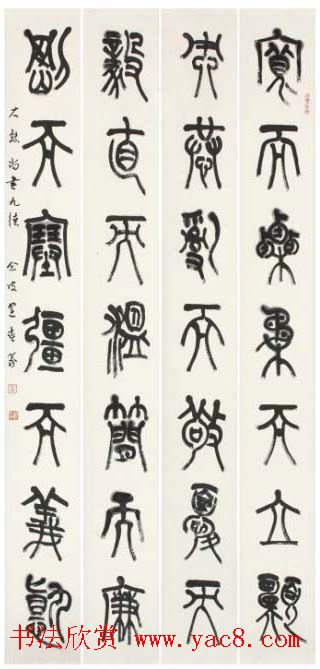 寬而栗柔而立願
而恭亂而敬擾而
毅直而溫簡而廉
剛而塞彊而義
尚書九德
书法欣赏 www.yac8.com